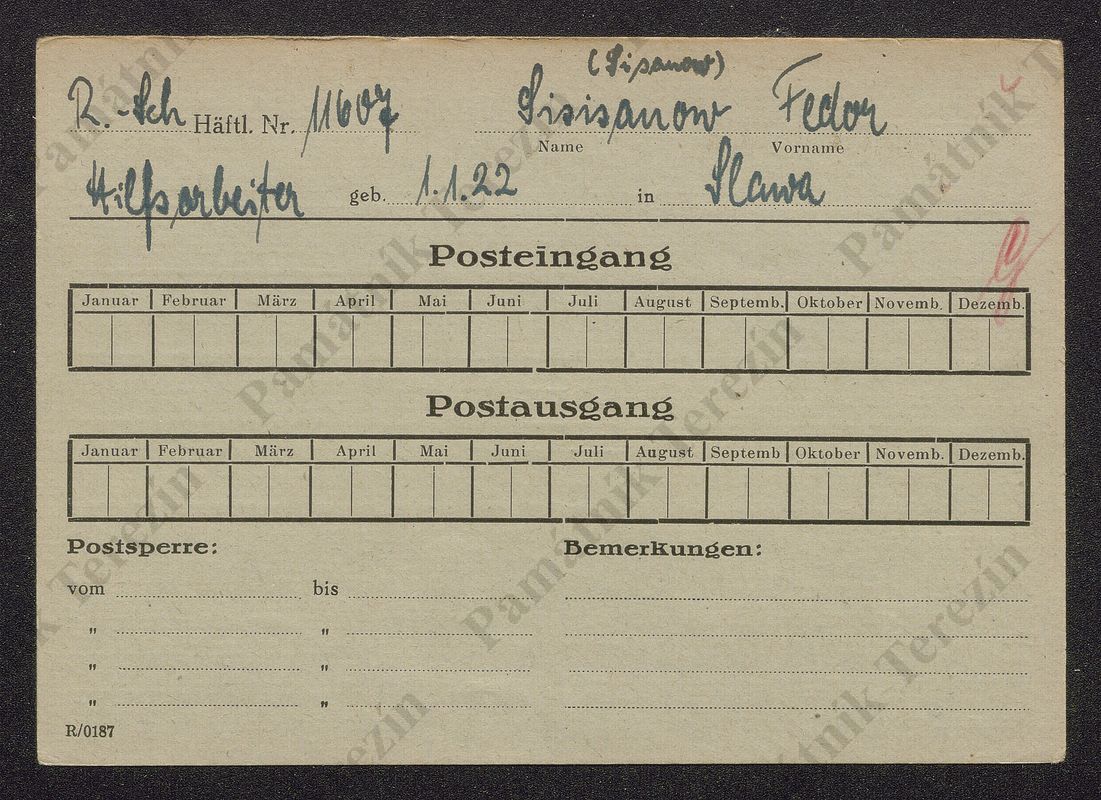 (Sisanow)
R.-Sch Häftl. Nr. 11607 Sisisanow Fedor
Name Vorname
Hilfsarbeiter geb. 1.1.22 in Slawa
Posteingang
Januar Februar März April Mai Juni Juli August Septemb. Oktober Novemb. Dezemb.
Postausgang
Januar Februar März April Mai Juni Juli August Septemb Oktober Novemb. Dezemb.
Postsperre: Bemerkungen:
vom bis
" "
" "
" "
R/0187
Památník Terezín